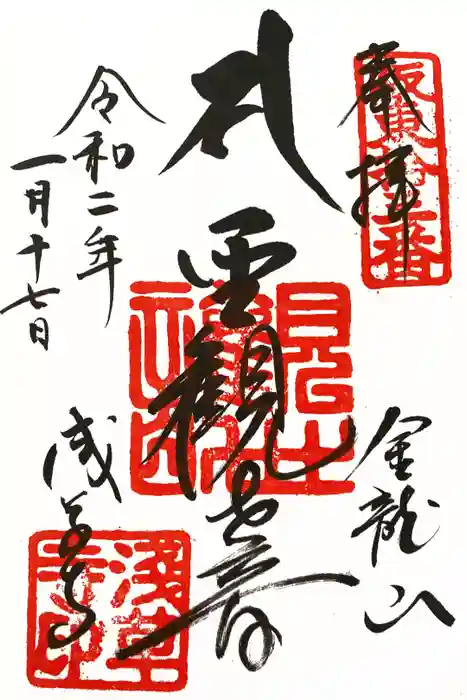 奉拝
坂東拾三番
聖観世音
金龍山
浅草寺
淺草寺印
令和二年
一月十七日